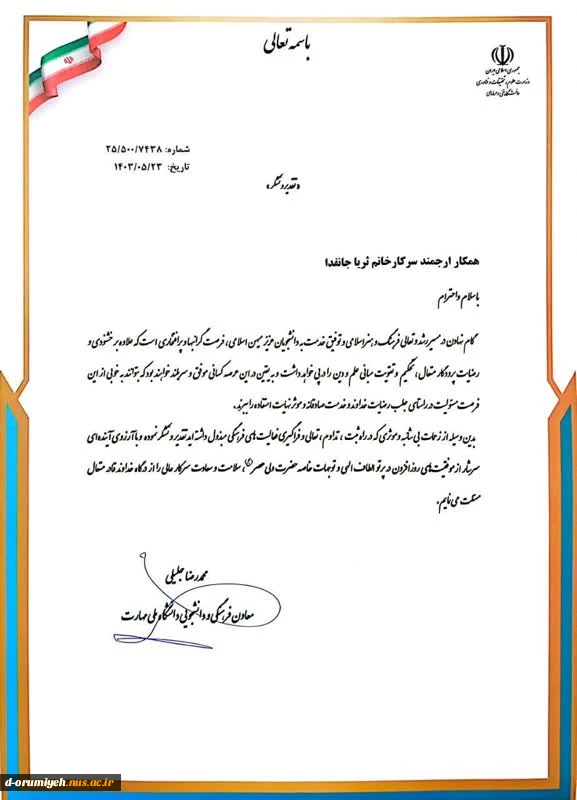 باسمه تعالی
جمهوری اسلامی ایران
وزارت علوم، تحقیقات و فناوری
دانشگاه فنی و حرفه‌ای
شماره: ۲۵/۵۰۰/۷۴۳۸
تاریخ: ۱۴۰۳/۰۵/۲۳
«تقدیر و تشکر»
همکار ارجمند سرکار خانم ثریا جانفدا
با سلام و احترام
گام نهادن در مسیر رشد و تعالی فرهنگ و هنر اسلامی و توفیق خدمت به دانشجویان عزیز میهن اسلامی، فرصت گرانبها و پرافتخاری است که علاوه بر خشنودی و
رضایت پروردگار متعال، تحکیم و تقویت مبانی علم و دین را در پی خواهد داشت و به یقین در این عرصه کسانی موفق و سربلند خواهند بود که بتوانند به خوبی از این
فرصت مسئولیت در راستای جلب رضایت خداوند و خدمت صادقانه و موثر نهایت استفاده را ببرند.
بدین وسیله از زحمات بی شائبه و موثری که در راه ثبت، تداوم، تعالی و فراگیری فعالیت های فرهنگی مبذول داشته اید تقدیر و تشکر نموده و با آرزوی آینده ای
سرشار از موفقیت های روز افزون در پرتو الطاف الهی و توجهات خاصه حضرت ولی عصر(عج)، سلامت و سعادت سرکار عالی را از درگاه خداوند قادر متعال
مسئلت می نمایم.
محمدرضا جلیلی
معاون فرهنگی و دانشجویی دانشگاه ملی مهارت
d-orumiyeh.nus.ac.ir